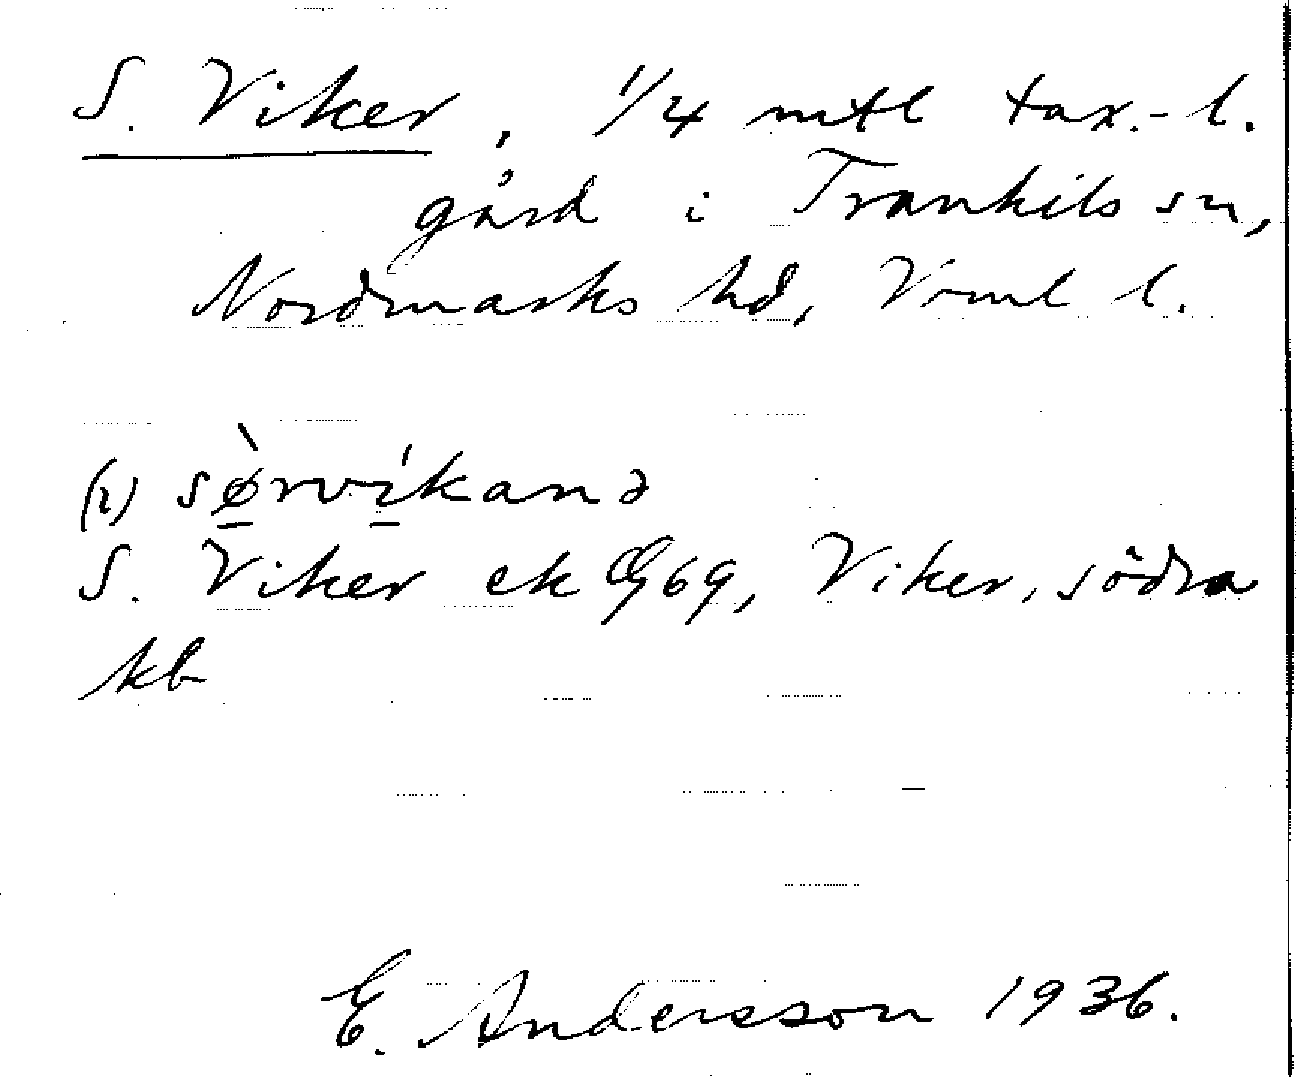 S. Viker, 1/4 mtl tax.-l.
gård i Trankils sn,
Nordmarks hd, Vrml l.
(i) sø̀rvíkanə
S. Viker ek 69, Viker, södra
kb
E. Andersson 1936.